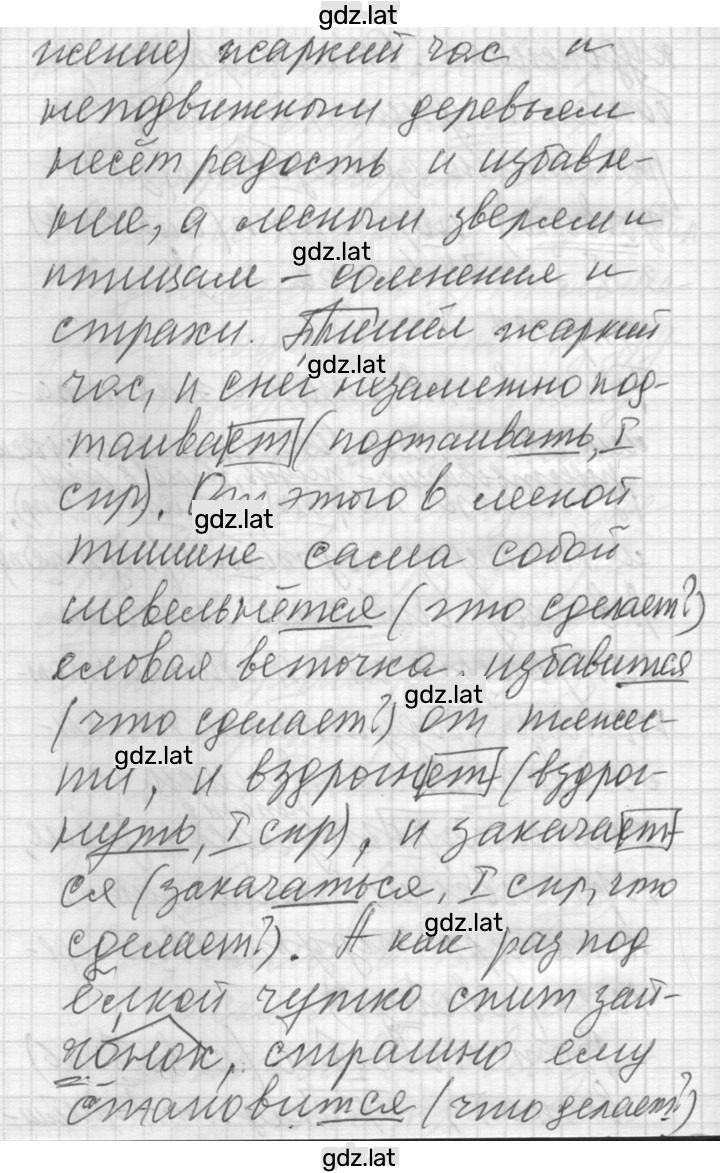 gdz.lat
жение) жаркий час и
неподвижным деревьям
несёт радость и избавле-
ние, а лесным зверям и
gdz.lat
птицам – сомнения и
страхи. Пришёл жаркий
gdz.lat
час, и снег незаметно под-
таивает (подтаивать, I
спр). При этого в лесной
gdz.lat
тишине сама собой
шевельнётся (что сделает?)
еловая веточка, избавится
gdz.lat
(что сделает?) от тяжес-
gdz.lat
ти, и вздрогнет (вздрог-
нуть, I спр), и закачает-
ся (закачаться, I спр, что
gdz.lat
сделает?). А как раз под
ёлкой чутко спит зай-
чонок, страшно ему
становится (что делает?)
gdz.lat